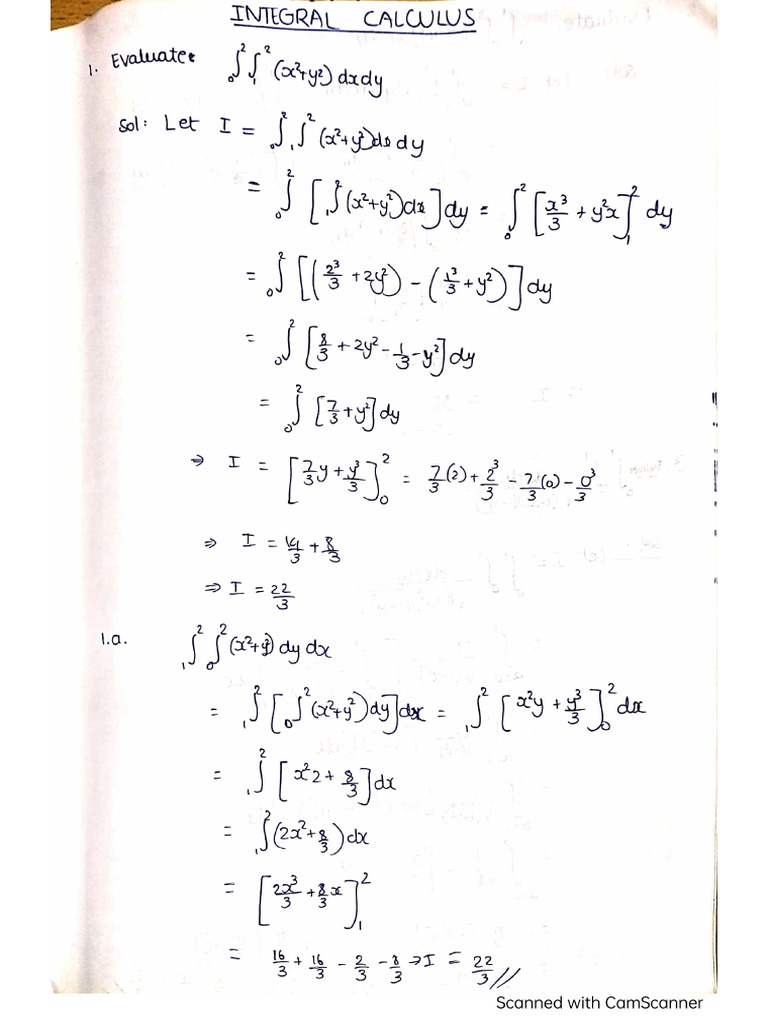 INTEGRAL CALCULUS
1. Evaluate: ₀∫² ₁∫² (x²+y²) dxdy
Sol: Let I = ₀∫² ₁∫² (x²+y²) dx dy
= ₀∫² [₁∫² (x²+y²) dx] dy = ₀∫² [x³/3 + y²x]₁² dy
= ₀∫² [(2³/3 + 2y²) - (1³/3 + y²)] dy
= ₀∫² [8/3 + 2y² - 1/3 - y²] dy
= ₀∫² [7/3 + y²] dy
⇒ I = [7/3 y + y³/3]₀² = 7/3 (2) + 2³/3 - 7/3 (0) - 0³/3
⇒ I = 14/3 + 8/3
⇒ I = 22/3
1.a. ₁∫² ₀∫² (x²+y²) dy dx
= ₁∫² [₀∫² (x²+y²) dy] dx = ₁∫² [x²y + y³/3]₀² dx
= ₁∫² [x²2 + 8/3] dx
= ₁∫² (2x² + 8/3) dx
= [2x³/3 + 8/3 x]₁²
= 16/3 + 16/3 - 2/3 - 8/3 ⇒ I = 22/3 //
Scanned with CamScanner